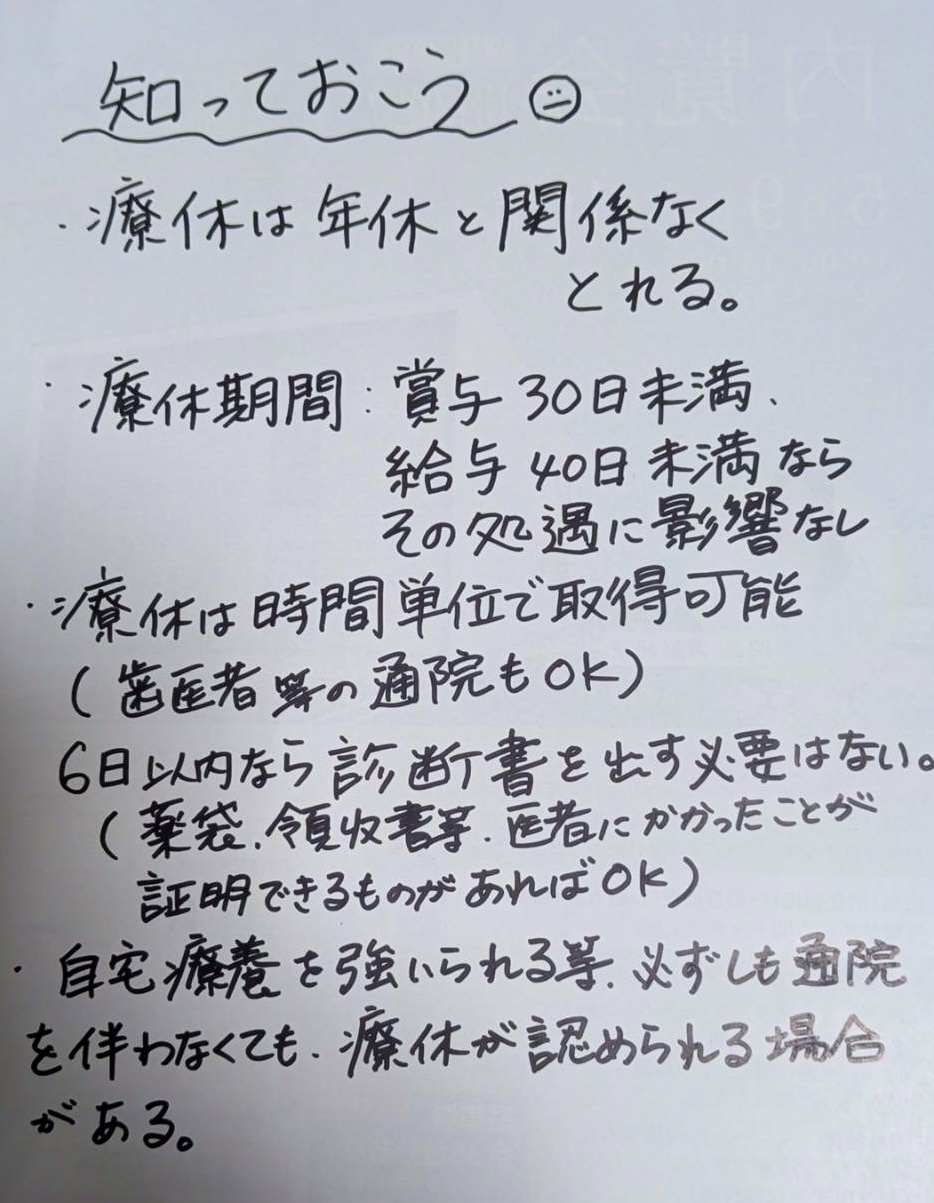 知っておこう
・療休は年休と関係なく
とれる。
・療休期間:賞与30日未満、
給与40日未満なら
その処遇に影響なし
・療休は時間単位で取得可能
(歯医者等の通院もOK)
6日以内なら診断書を出す必要はない。
(薬袋、領収書等、医者にかかったことが
証明できるものがあればOK)
・自宅療養を強いられる等、必ずしも通院
を伴わなくても、療休が認められる場合
がある。